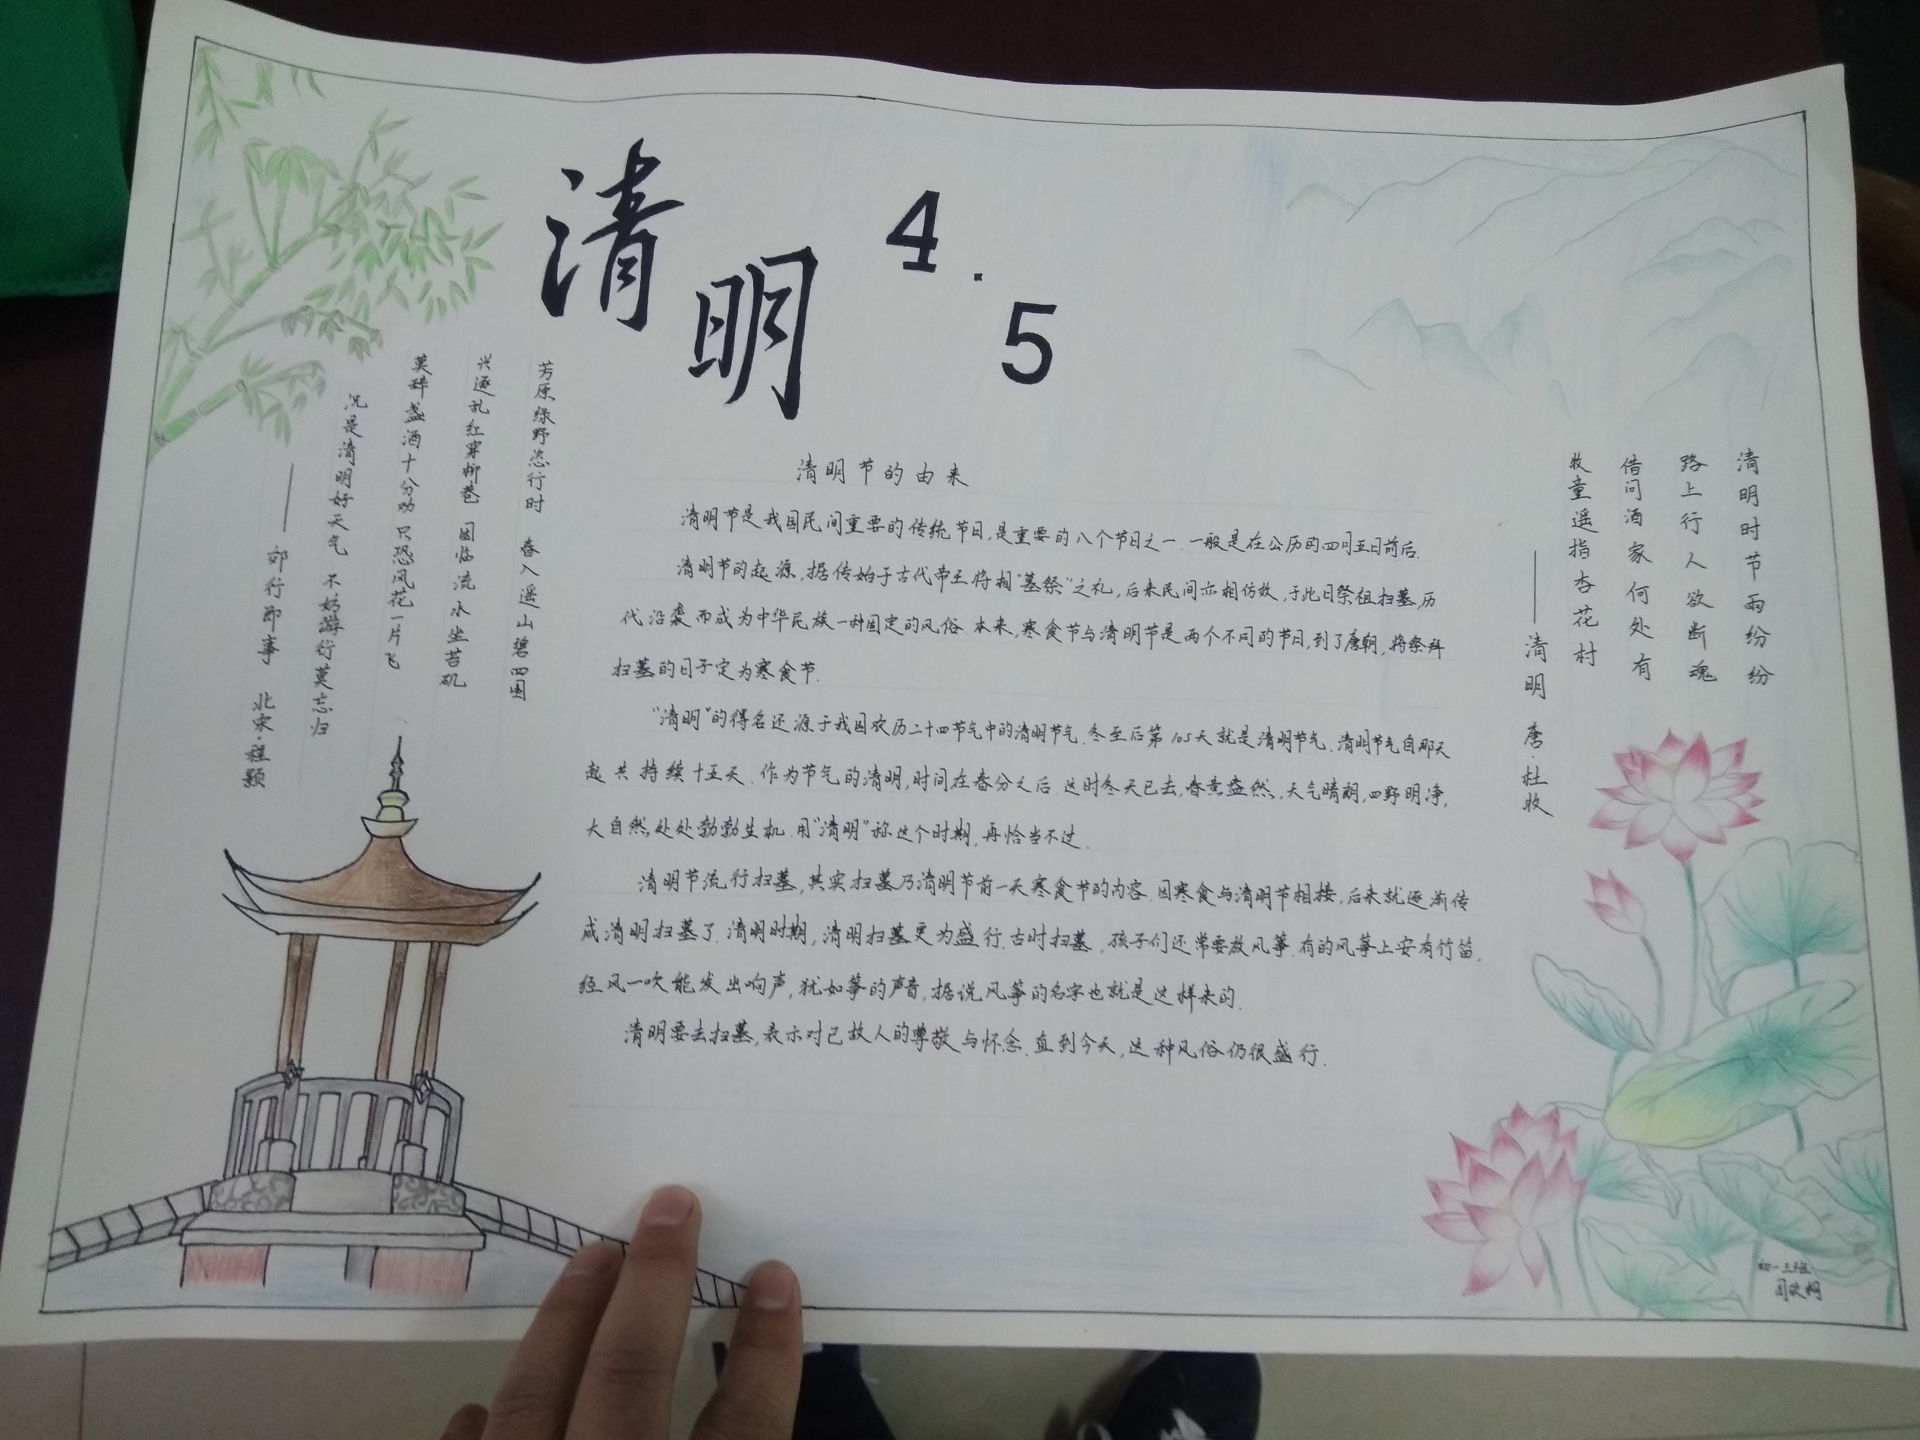 清明
4.5
芳原绿野恣行时 春入遥山碧四围
兴逐乱红穿柳巷 因临流水坐苔矶
莫辞盏酒十分劝 只恐风花一片飞
况是清明好天气 不妨游衍莫忘归
——郊行即事 北宋·程颢
清明节的由来
清明节是我国民间重要的传统节日,是重要的八个节日之一.一般是在公历的四月五日前后.
清明节的起源,据传始于古代帝王将相"墓祭"之礼,后来民间亦相仿效,于此日祭祖扫墓,历
代沿袭而成为中华民族一种固定的风俗.本来,寒食节与清明节是两个不同的节日,到了唐朝,将祭拜
扫墓的日子定为寒食节.
"清明"的得名还源于我国农历二十四节气中的清明节气.冬至后第105天就是清明节气.清明节气自那天
起共持续十五天.作为节气的清明,时间在春分之后.这时冬天已去,春意盎然,天气晴朗,四野明净,
大自然处处勃勃生机.用"清明"称这个时期,再恰当不过.
清明节流行扫墓,其实扫墓乃清明节前一天寒食节的内容.因寒食与清明节相接,后来就逐渐传
成清明扫墓了.清明时期,清明扫墓更为盛行.古时扫墓,孩子们还常要放风筝.有的风筝上安有竹笛,
经风一吹能发出响声,犹如筝的声音,据说风筝的名字也就是这样来的.
清明要去扫墓,表示对已故人的尊敬与怀念.直到今天,这种风俗仍很盛行.
清明时节雨纷纷
路上行人欲断魂
借问酒家何处有
牧童遥指杏花村
——清明 唐·杜牧
初一3班